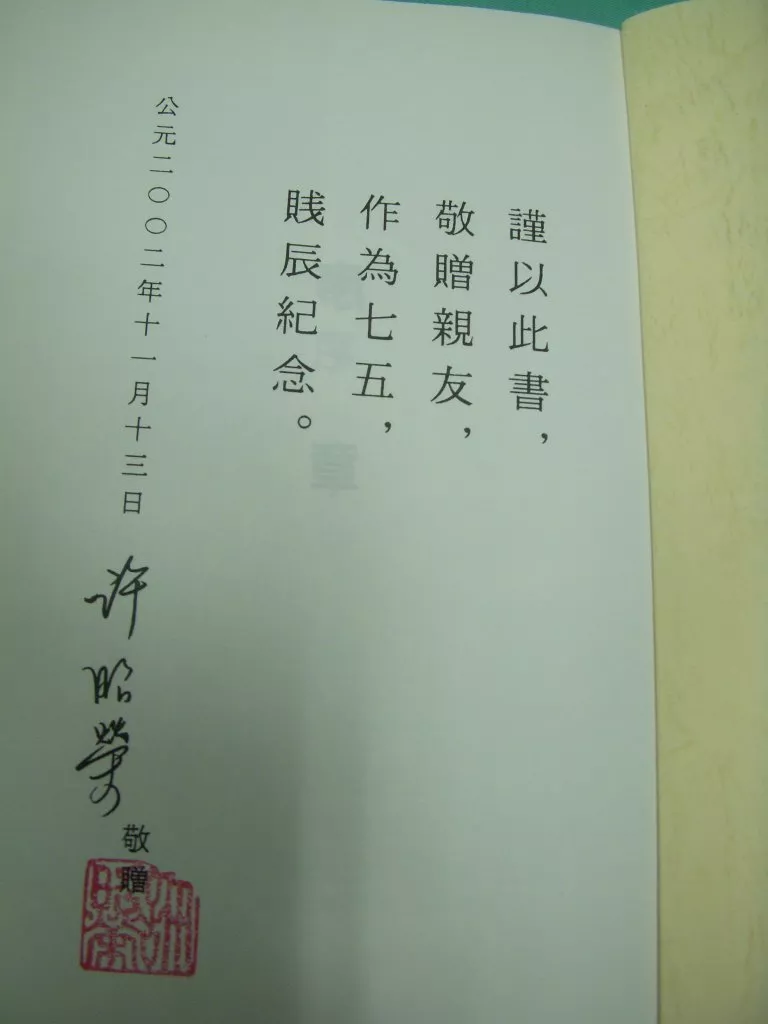 謹以此書，
敬贈親友，
作為七五，
賤辰紀念。
公元二〇〇二年十一月十三日
許昭榮
敬贈